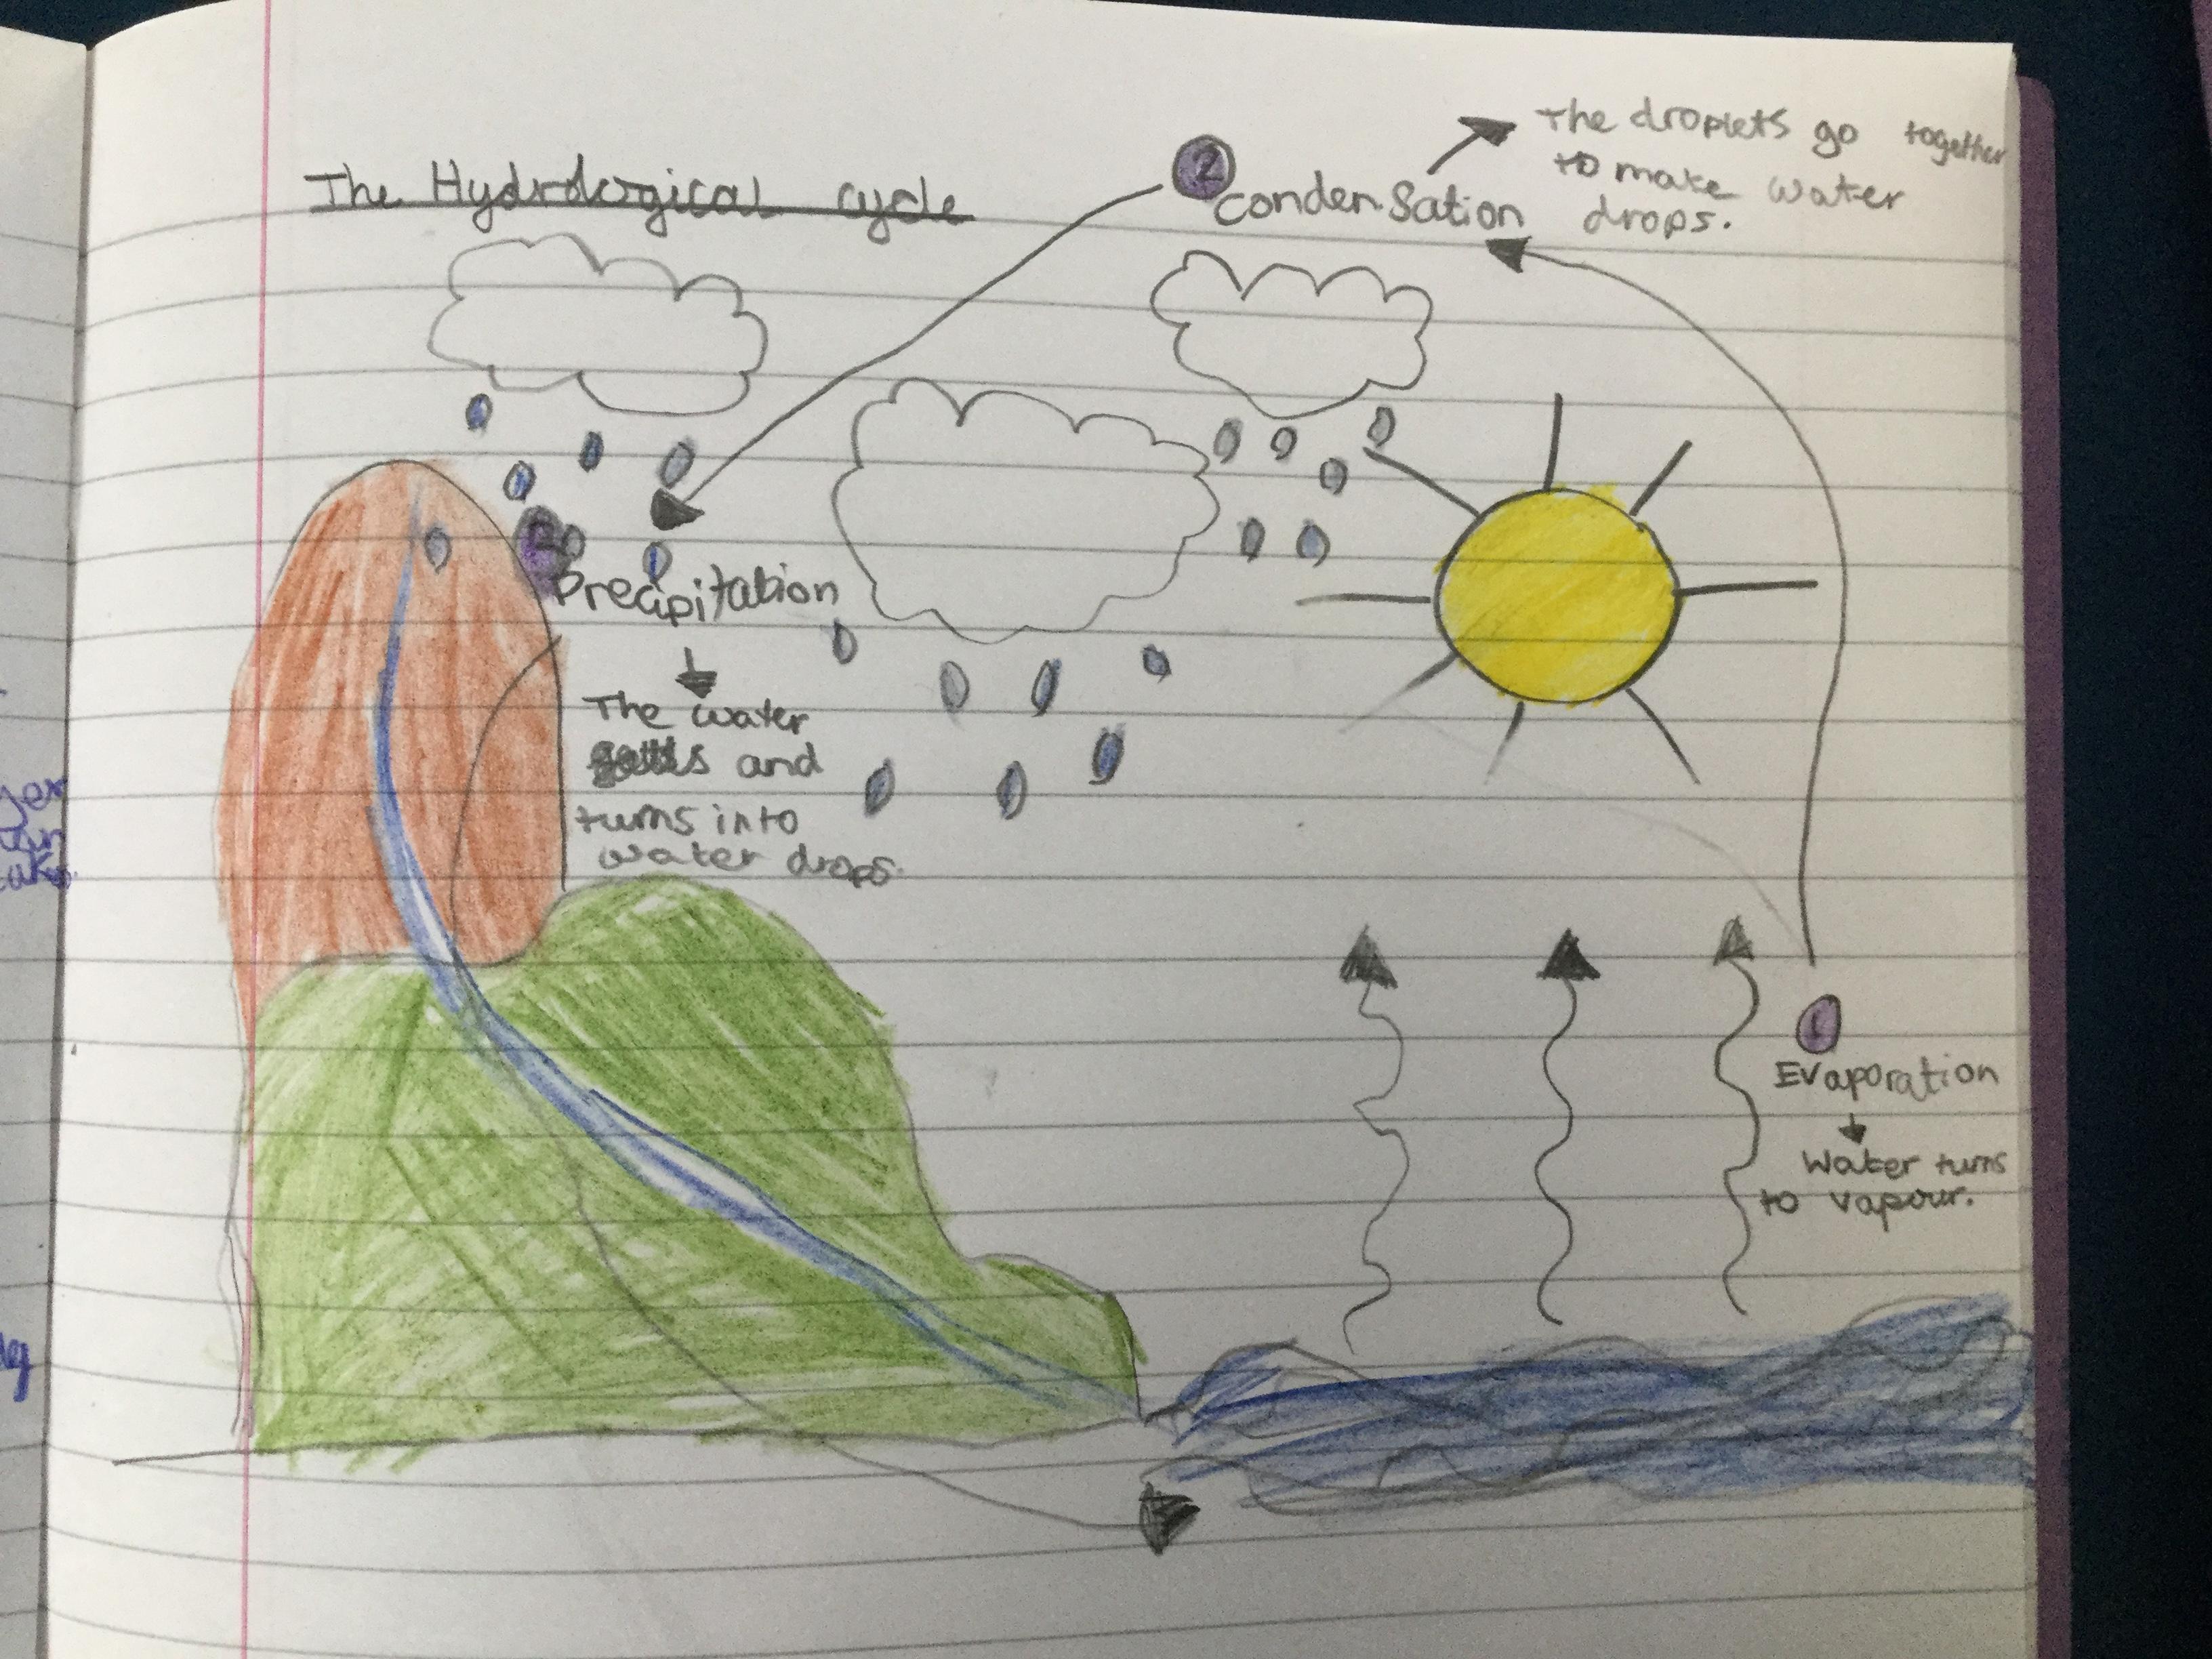 The Hydrological cycle
2
condensation
The droplets go together
to make water
drops.
Precipitation
The water
and
turns into
water drops.
1
Evaporation
Water turns
to vapour.